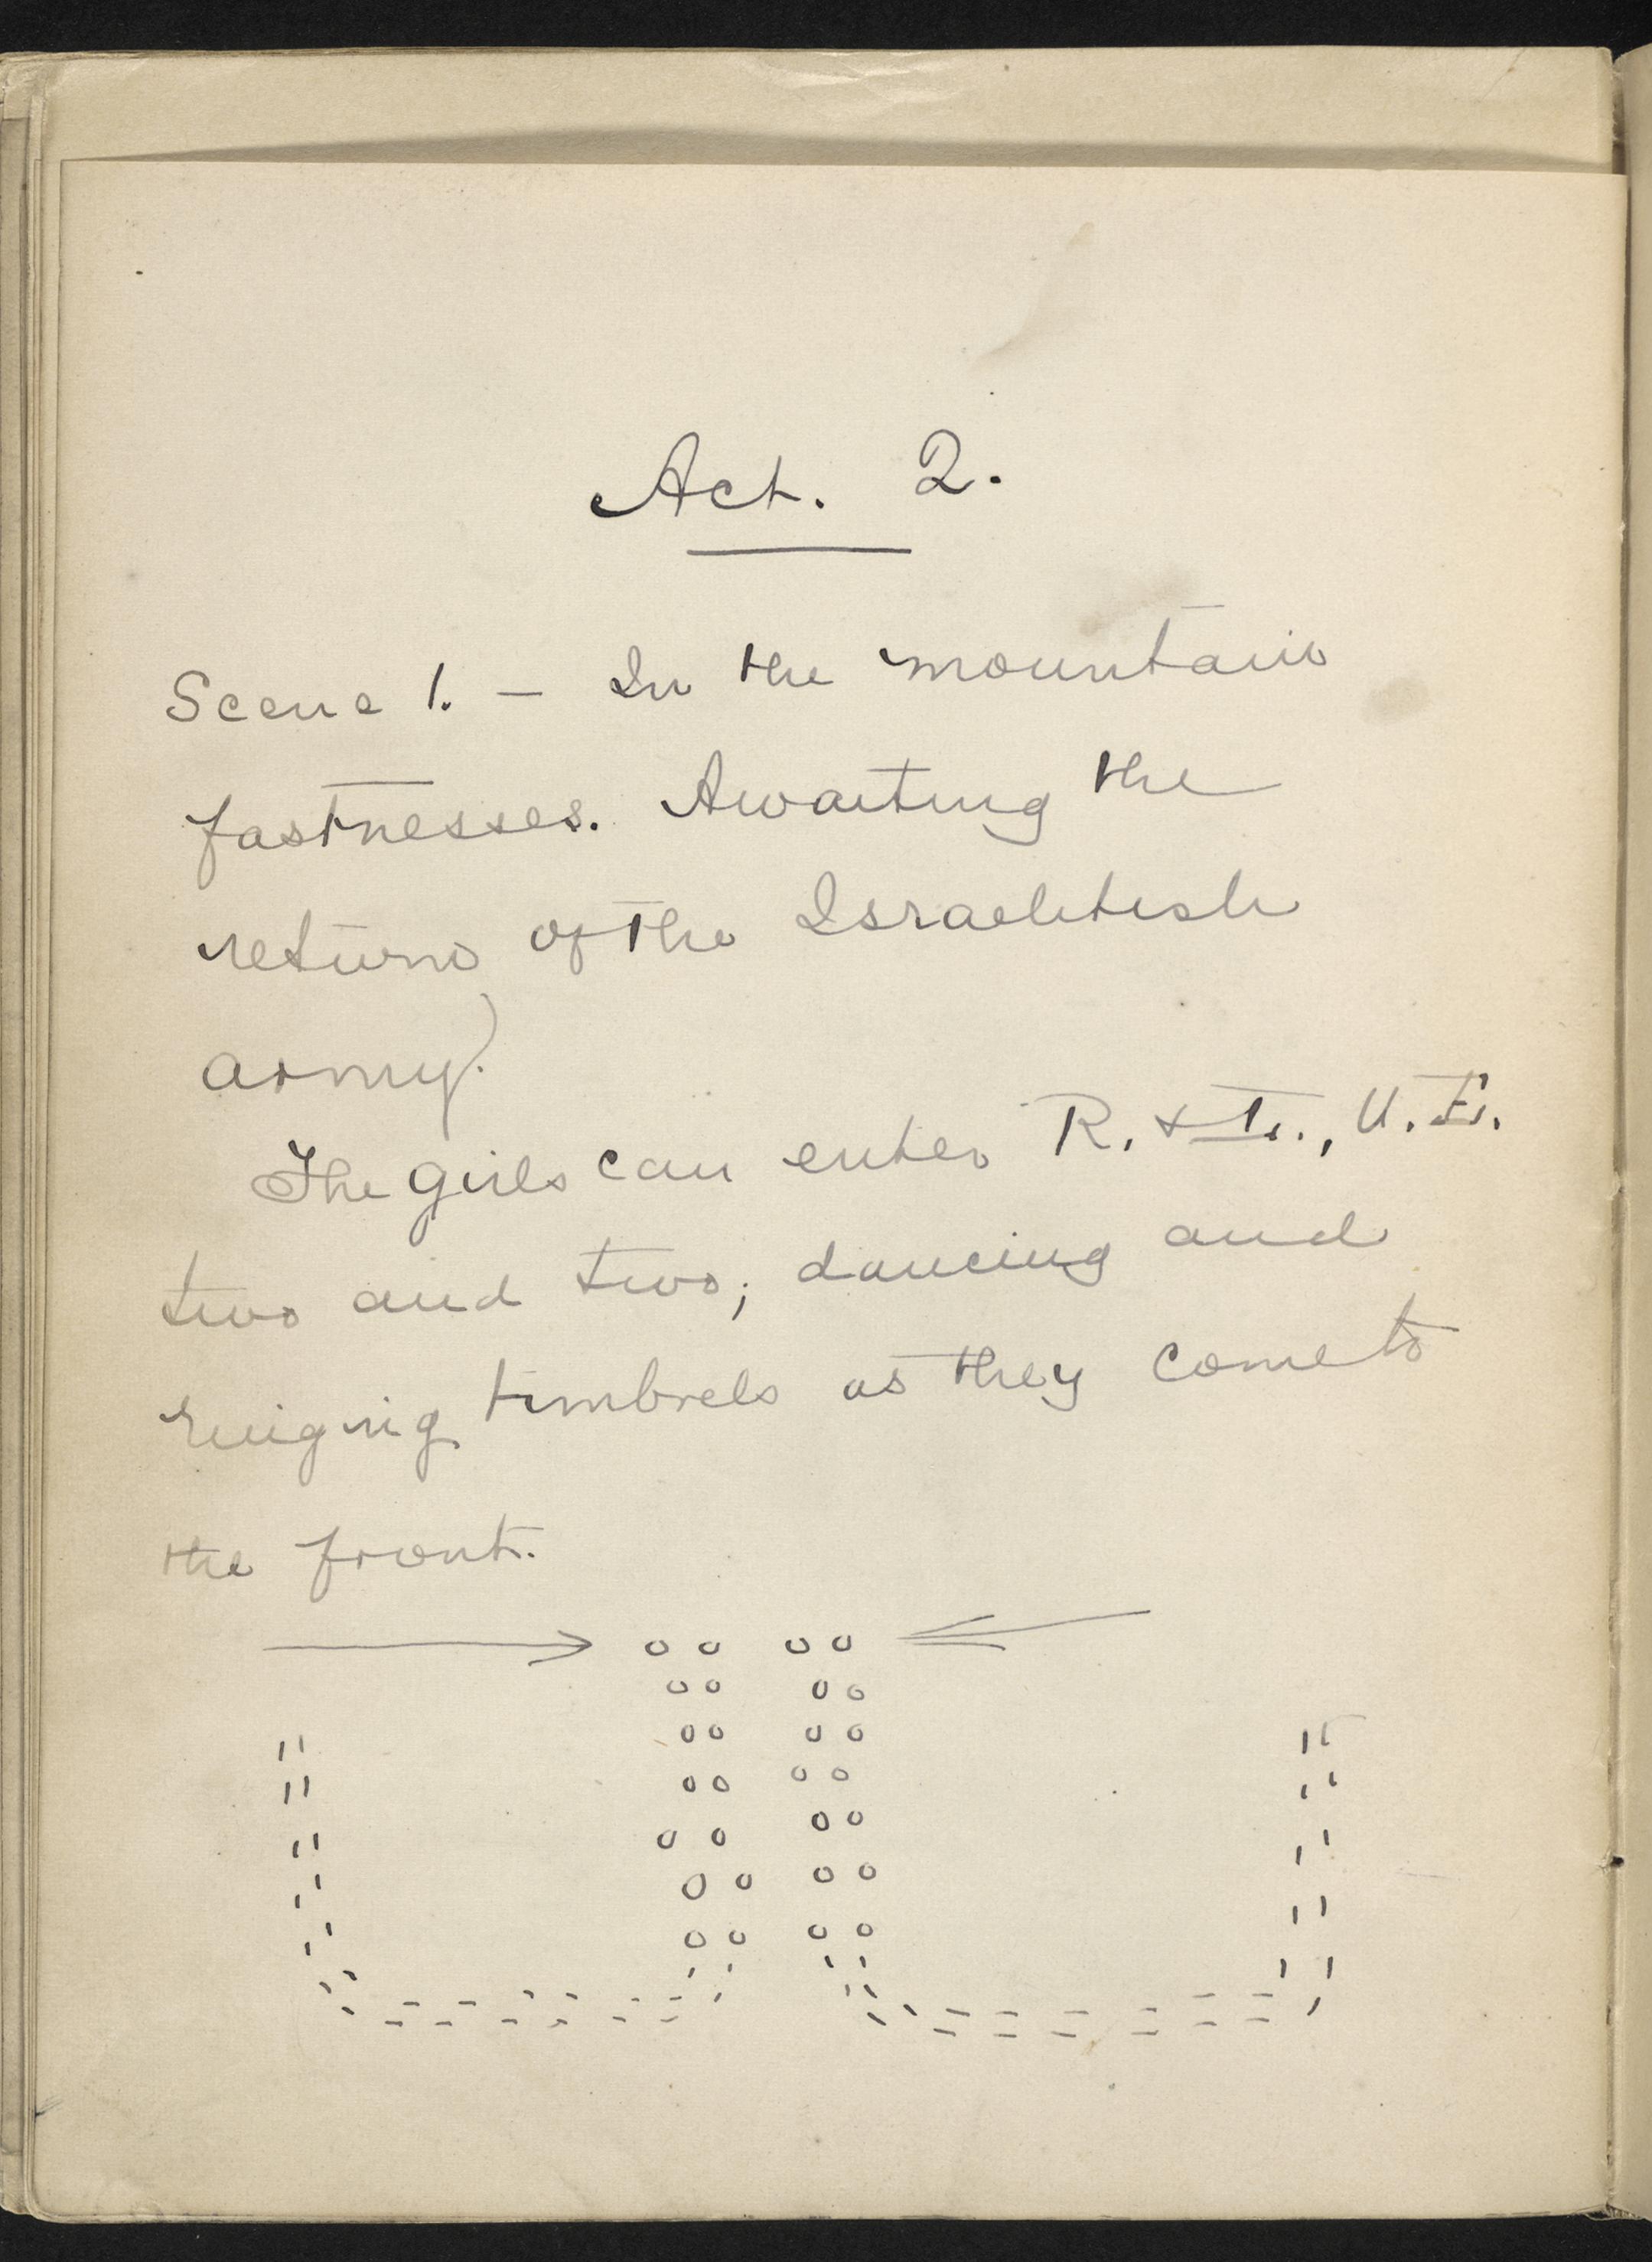 Act. 2.
Scene 1. — In the mountain
fastnesses. Awaiting the
return of the Israelitish
army.)
The girls can enter R. & L., U. E.
two and two; dancing and
ringing timbrels as they come to
the front.